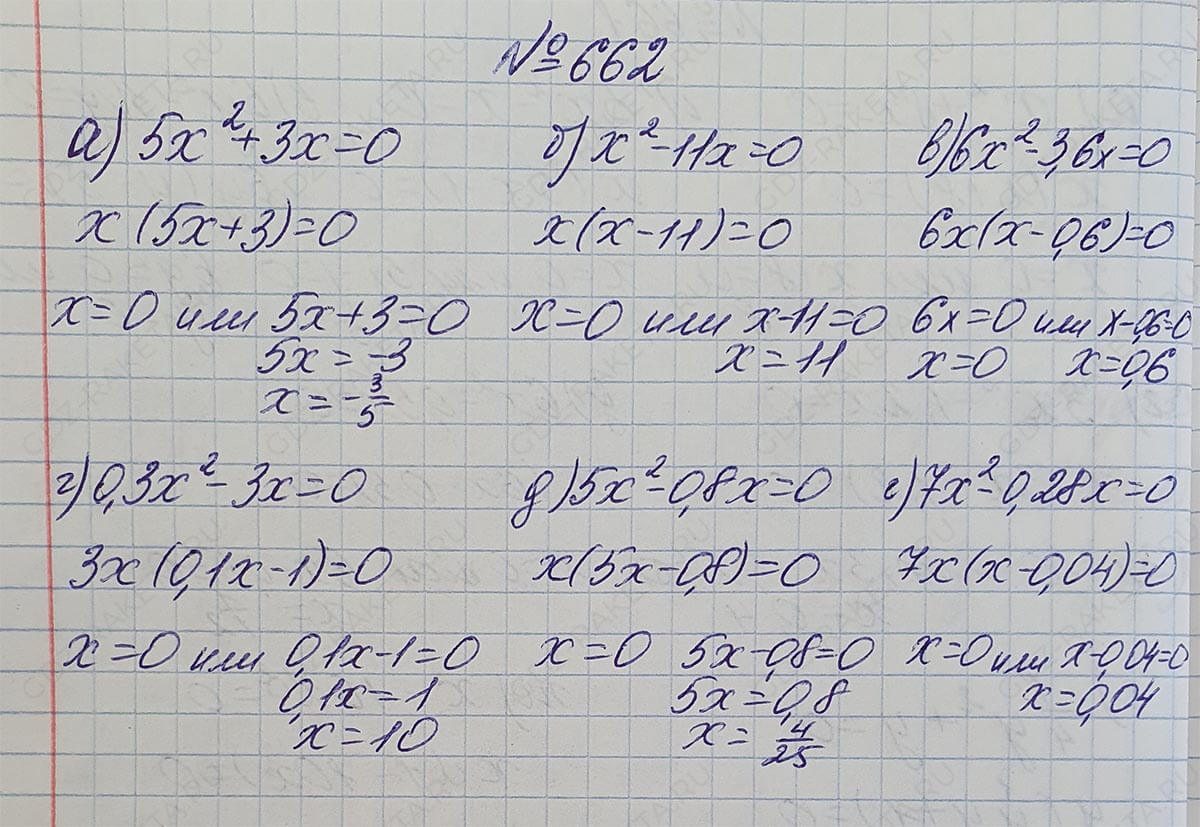 №662
а) 5x²+3x=0
x(5x+3)=0
x=0 или 5x+3=0
5x=-3
x=-3/5
б) x²-11x=0
x(x-11)=0
x=0 или x-11=0
x=11
в) 6x²-3,6x=0
6x(x-0,6)=0
6x=0 или x-0,6=0
x=0 x=0,6
г) 0,3x²-3x=0
3x(0,1x-1)=0
x=0 или 0,1x-1=0
0,1x=1
x=10
д) 5x²-0,8x=0
x(5x-0,8)=0
x=0 5x-0,8=0
5x=0,8
x=4/25
е) 7x²-0,28x=0
7x(x-0,04)=0
x=0 или x-0,04=0
x=0,04